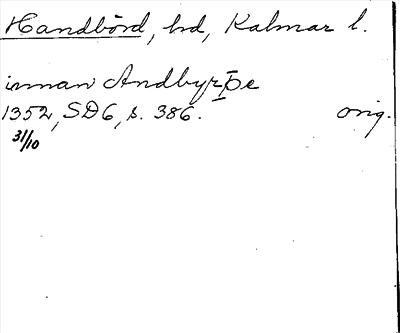 Handbörd, hd, Kalmar l.
innan Andbyrþe
1352, SD6, s. 386. orig.
31/10